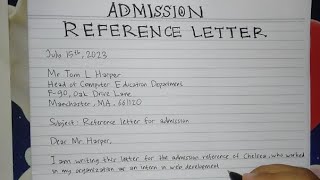 ADMISSION
REFERENCE LETTER.
July 15th, 2023
Mr Tom L Harper
Head of Computer Education Department
F-90, Oak Drive Lane
Manchaster, MA, 661120
Subject: Reference letter for admission
Dear Mr. Harper,
I am writing this letter for the admission reference of Chelsea, who worked
in my organization as an intern in web development